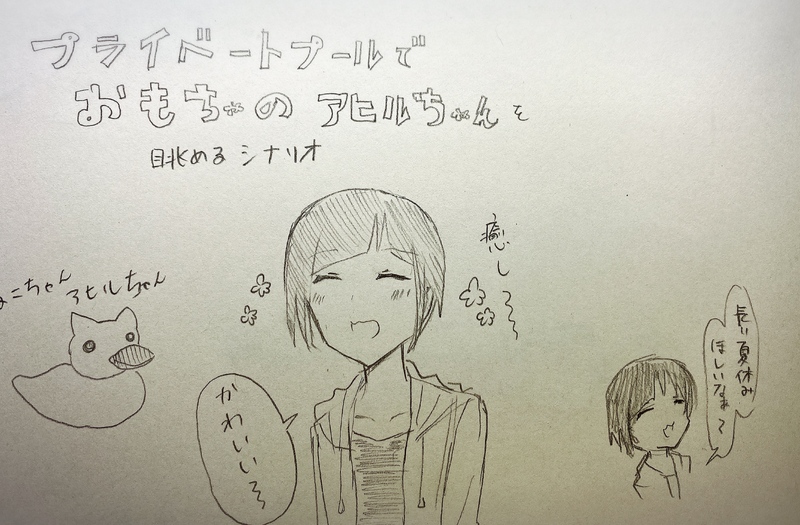 プライベートプールで
おもちゃの アヒルちゃんを
眺める シナリオ
癒し～～
こちゃん
アヒルちゃん
かわいい～
長い夏休み
ほしいなぁ～